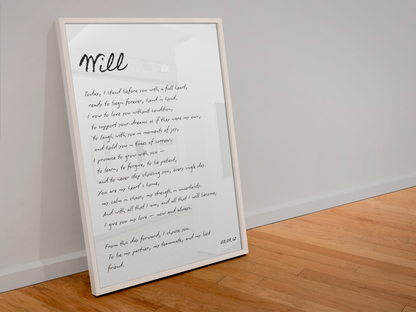 Will
Today, I stand before you with a full heart,
ready to begin forever, hand in hand.
I vow to love you without condition,
to support your dreams as if they were my own,
to laugh with you in moments of joy,
and hold you in times of sorrow.
I promise to grow with you —
to learn, to forgive, to be patient,
and to never stop choosing you, every single day.
You are my heart's home,
my calm in chaos, my strength in uncertainty.
And with all that I am, and all that I will become,
I give you my love — now and always.
From this day forward, I choose you.
To be my partner, my teammate, and my best
friend.